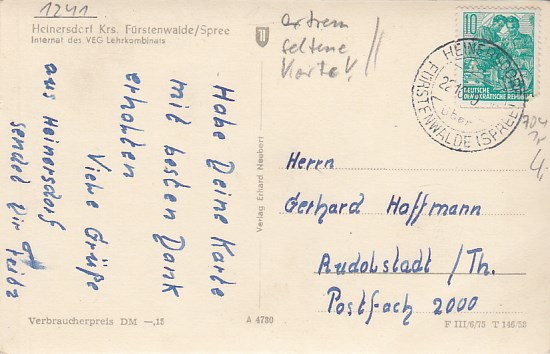 1241
Heinersdorf Krs. Fürstenwalde/Spree
Internat des VEG Lehrkombinats
extrem
seltene
Karte!
Habe Deine Karte
mit besten Dank
erhalten
Viele Grüße
aus Heinersdorf
sendet Dir
Verlag Erhard Neubert
10
DEUTSCHE
DEMOKRATISCHE REPUBLIK
HEINERSDORF
22.10.
über
FÜRSTENWALDE (SPREE)
4,-
Herrn
Gerhard Hoffmann
Rudolstadt / Th.
Postfach 2000
Verbraucherpreis DM —,15
A 4730
F III/6/75 T 146·58